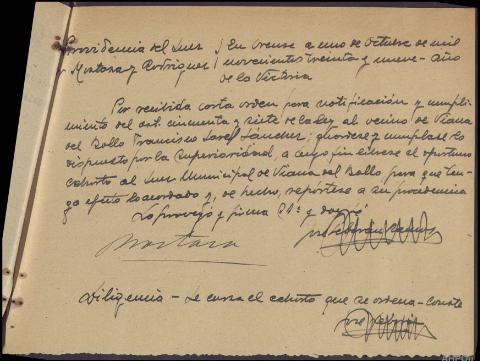 Providencia del Juez / En Orense a uno de Octubre de mil
r. Montana y Rodriguez / novecientos treinta y nueve - Año
de la Victoria
Por recibida carta orden para notificación y cumpli-
miento del art. cincuenta y siete de la Ley al vecino de Viana
del Bollo Francisco Sánchez; guardese y cumplase lo
dispuesto por la Superioridad, a cuyo fin librese el oportuno
exhorto al Juez Municipal de Viana del Bollo para que ten-
ga efecto lo acordado y, de hecho, repórtese a su procedencia
Lo proveyó y firma S.Sª y doy fé
Montana
Diligencia - Se cursa el exhorto que se ordena - Conste